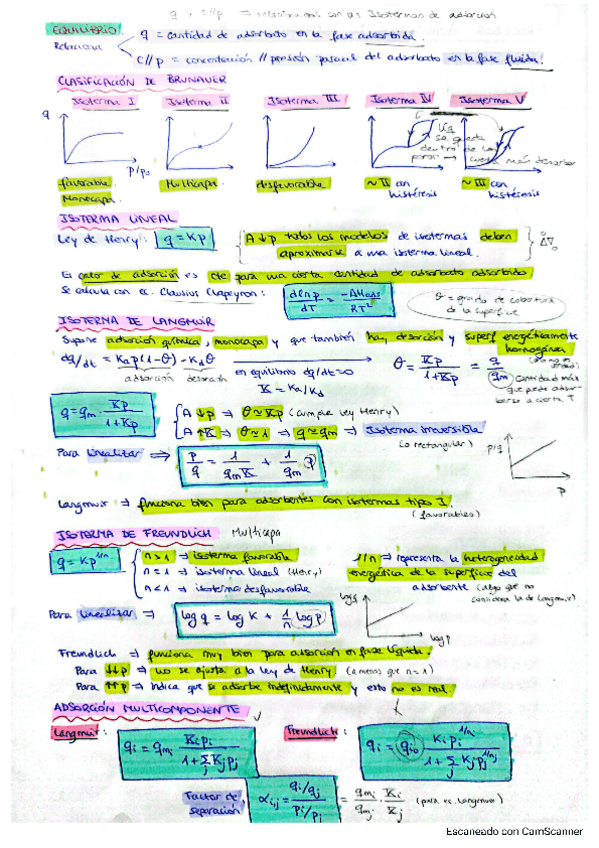 q y c//p ⇒ relacionados con las Isotermas de adsorción
EQUILIBRIO.
Relaciona
q = cantidad de adsorbato en la fase adsorbida.
C//p = concentración // presión parcial del adsorbato en la fase fluida.
CLASIFICACIÓN DE BRUNAUER
Isoterma I Isoterma II Isoterma III Isoterma IV Isoterma V
q
P/P₀
liq se queda dentro de los poros → cuesta más desorber
favorable. Multicapa desfavorable ~II con histéresis ~III con histéresis
Monocapa.
ISOTERMA LINEAL
Ley de Henry: q = Kp
A ↓p todos los modelos de isotermas deben
aproximarse a una isoterma lineal.
El calor de adsorción es cte para una cierta cantidad de adsorbato adsorbido
Se calcula con ec. Clausius Clapeyron: dlnp/dT = -ΔHads/RT²
θ = grado de cobertura de la superficie
ISOTERMA DE LANGMUIR
Supone adsorción química, monocapa y que también hay desorción y superf energéticamente
homogénea
dq/dt = Kₐp(1-θ) - K_dθ en equilibrio dq/dt=0 → θ = Kp/1+Kp = q/qm
adsorción desorción K = Ka/Kd
Cantidad máx que puede adsorberse a cierta T
q = qm Kp/1+Kp
A ↓p ⇒ θ ≃ Kp (cumple ley Henry)
A ↑K ⇒ θ ≃ 1 ⇒ q ≃ qm ⇒ Isoterma irreversible
(o rectangular)
Para linealizar ⇒ p/q = 1/qmK + 1/qm p
p/q
p
Langmuir ⇒ funciona bien para adsorbentes con isotermas tipo I.
(favorables)
ISOTERMA DE FREUNDLICH Multicapa
q = Kp^1/n
n > 1 ⇒ isoterma favorable
n = 1 ⇒ isoterma lineal (Henry)
n < 1 ⇒ isoterma desfavorable
1/n ⇒ representa la heterogeneidad
energética de la superficie del
adsorbente (algo que no
considera la de Langmuir)
Para linealizar ⇒ log q = log K + 1/n log p
log q
log p
Freundlich ⇒ funciona muy bien para adsorción en fase líquida.
Para ↓↓p ⇒ no se ajusta a la ley de Henry (a menos que n=1)
Para ↑↑p ⇒ indica que se adsorbe indefinidamente y esto no es real.
ADSORCIÓN MULTICOMPONENTE
Langmuir: qi = qmi Kipi/1+ΣjKjpj
Freundlich: qi = qio Kipi^1/ni/1+Σj Kjpj^1/nj
Factor de separación αi,j = qi/qj/pi/pj = qmi/qmj · Ki/Kj (para ec. Langmuir)
Escaneado con CamScanner